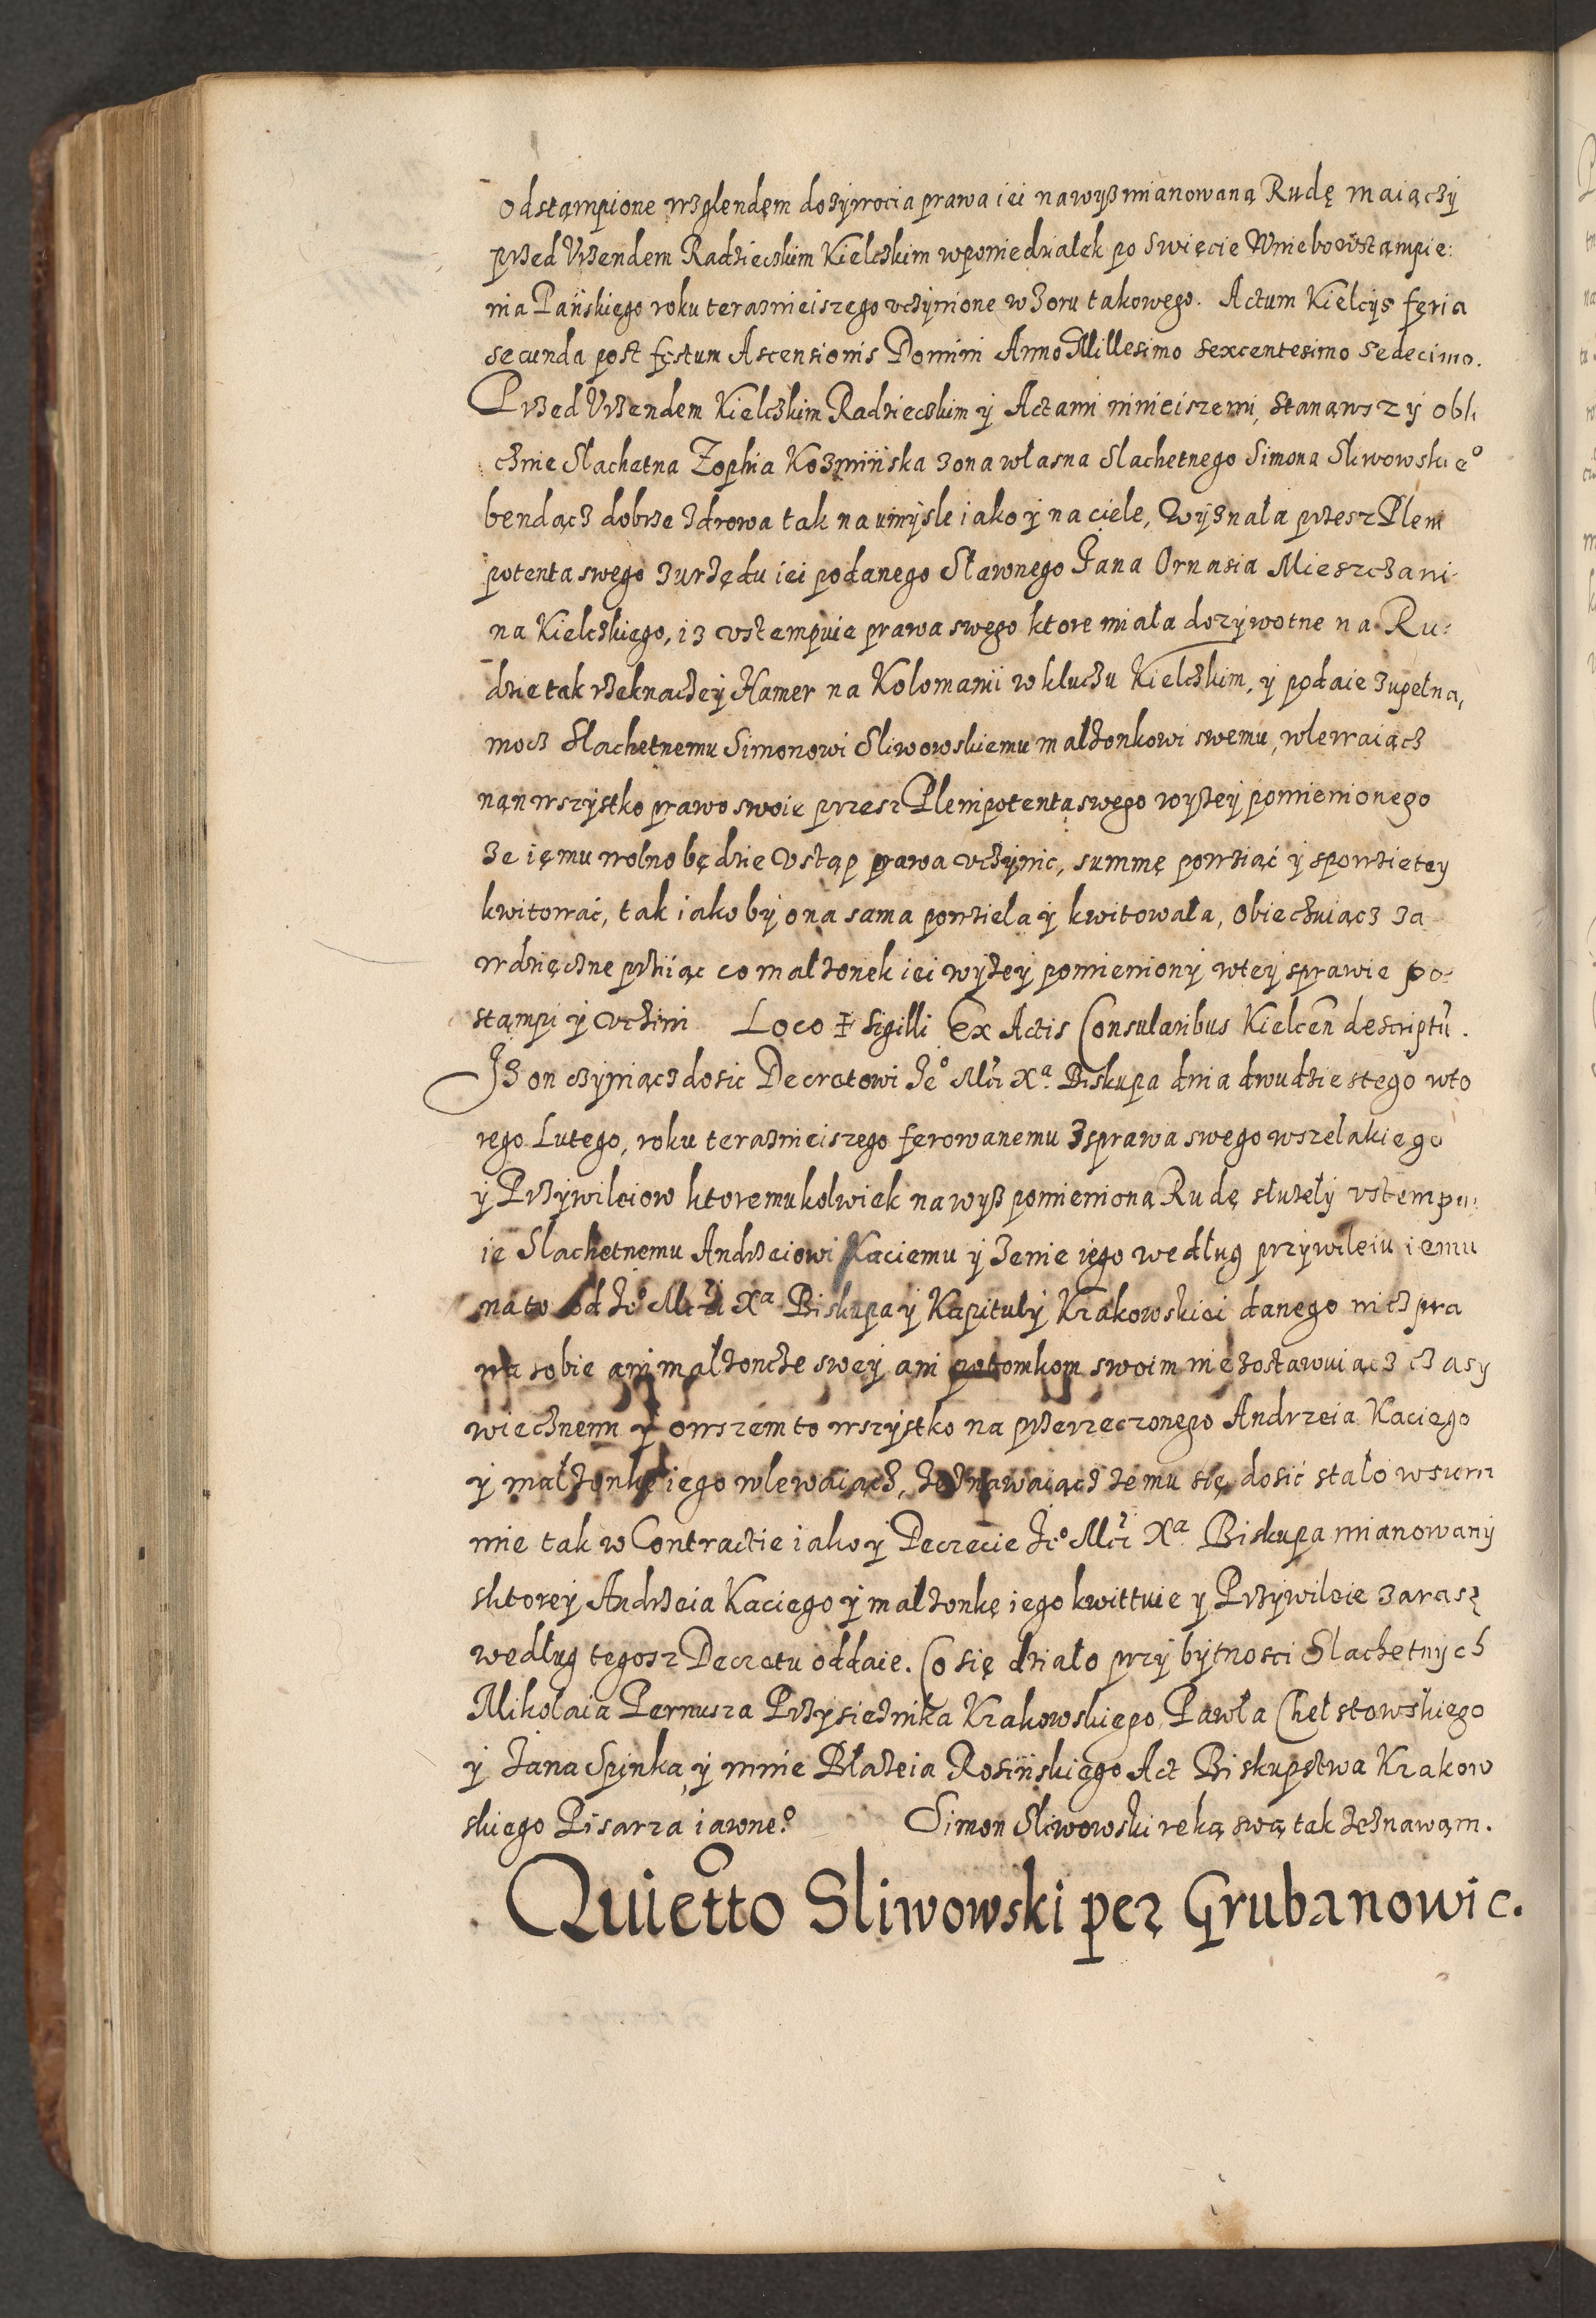 odstąmpione wzglendęm dozÿwocia prawa iei na wyß mianowaną Rudę maiączÿ
przed Vrzendem Radzieczkim Kielczkim w poniedzialek po Swięcie Wniebowstąmpie:
nia Pańskiego roku teraznieiszego vczÿnione w zoru takowego. Actum Kielcÿs feria
secunda post festum Ascensionis Domini Anno Millesimo Sexcentesimo Sedecimo.
Przed Vrzendem Kielczkim Radzieczkim ÿ Actami ninieiszemi, stanąwszÿ obli
cznie Slachetna Zophia Kozmińska zona własna Slachetnego Simona Sliwowskie⁰
bendącz dobrze zdrowa tak na umÿsle iako ÿ na ciele, Wÿznała przesz Pleni
potenta swego z urzędu iei podanego Sławnego Jana Ornasia Mieszczani
na Kielczkiego, iz vstempuie prawa swego ktore miała dozÿwotne na Ru:
dzie tak rzeknaczeÿ Hamer na Kolomanii w kluczu Kielczkim, ÿ podaie zupełną
mocz Slachetnemu Simonowi Sliwowskiemu małzonkowi swemu, wlewaiącz
nąn wszÿstko prawo swoie przesz Plenipotenta swego wyżeÿ pomienionego
ze ięmu wolno będzie Vstąp prawa vczÿnic, summę powziąć ÿ s powzieteÿ
kwitować, tak iako bÿ ona sama powziela ÿ kwitowała, obieczuiącz za
wdzięczne prziiąc co małzonek iei wyżeÿ pomienionÿ w teÿ sprawie po:
stąmpi ÿ vczini Loco ‡ Sigilli Ex Actis Consularibus Kielceñ descriptũ.
Iz on czÿniącz dosic Decretowi Je⁰ Mći Xᵃ. Biskupa dnia dwudziestego wto
rego Lutego, roku teraznieiszego ferowanemu z sprawa swego wszelakiego
ÿ Przÿwileiow ktoremukolwiek na wyß pomienioną Rudę służełÿ vstempu:
ie Slachetnemu Andrzeiowi Kaciemu ÿ zenie iego według przÿwileiu iemu
na to od Je⁰ Mći Xᵃ Biskupa ÿ Kapitulÿ Krakowskiei danego nicz pra
wa sobie ani małżoncże sweÿ ani potomkom swoim nie zostawuiącz czasy
wiecznemi ÿ owszem to wszÿstko na przerzeczonego Andrzeia Kaciego
ÿ małżonkę iego wlewaiącz, żeznawaiącz żemu się dosić stało w sum
mie tak w Contractie iako ÿ Decrecie Je⁰ Mći Xᵃ Biskupa mianowanÿ
s ktoreÿ Andrzeia Kaciego ÿ małżonkę iego kwittuie ÿ Przÿwileie zarasz
według tegosz Decretu oddaie. Co się działo przÿ bÿtnosci Slachetnÿch
Mikolaia Pernusza Przÿsieżnika Krakowskiego Pawła Chełstowskiego
ÿ Jana Spinka, ÿ mnie Błażeia Rosińskiego Act Biskupstwa Krakow
skiego Pisarza iawne⁰. Simon Sliwowski reką swą tak żeznawąm.
Quietto Sliwowski per Grubanowic.